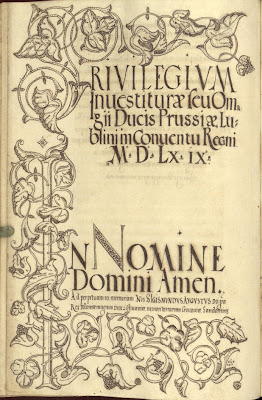 PRIVILEGIVM
Inuestituræ seu Om,
gii Ducis Prussiæ Lu-
blini in Conuentu Regni
M·D·LX·IX·
IN NOMINE
Domini Amen.
Ad perpetuam rei memoriam Nos SIGISMVNDVS AVGVSTVS
Rex magnus dux terrarum Cracouiæ